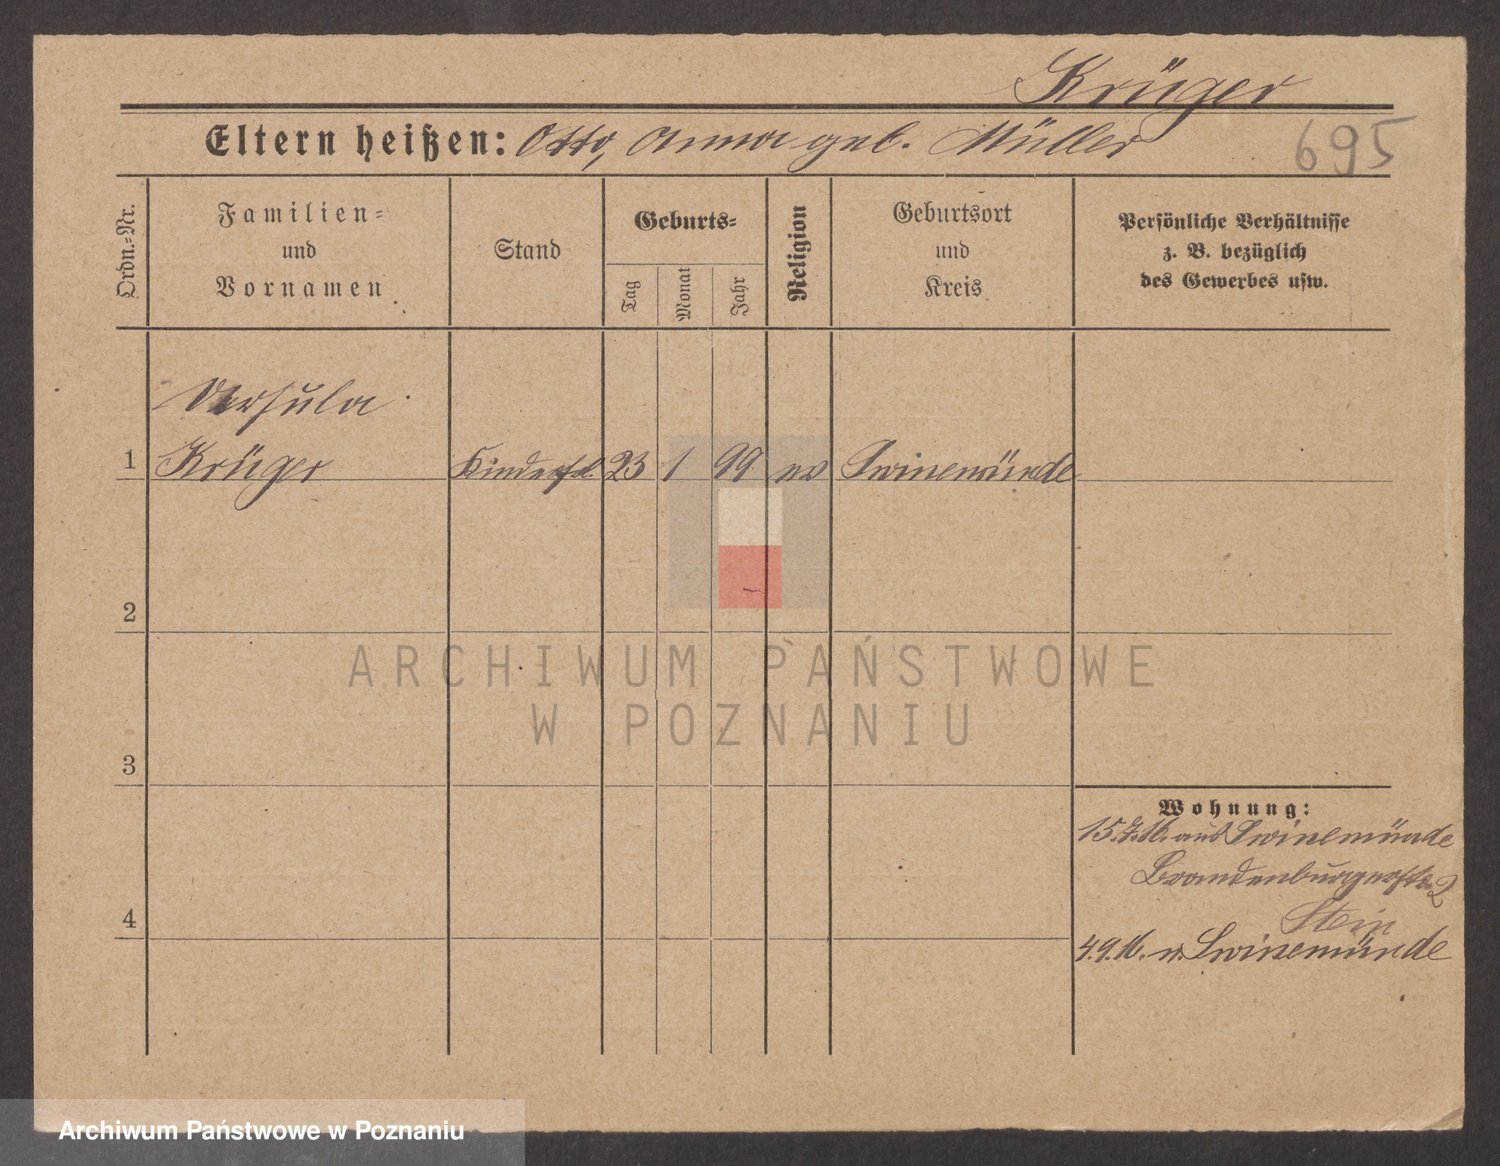 Krüger
Eltern heißen: Otto, Anna geb. Müller
695
Ordn.-Nr.
Familien-
und
Vornamen
Stand
Geburts-
Tag
Monat
Jahr
Religion
Geburtsort
und
Kreis
Persönliche Verhältnisse
z. B. bezüglich
des Gewerbes usw.
Ursula
1 Krüger Kinderfrl. 23 1 99 ev Swinemünde
2
ARCHIWUM PAŃSTWOWE
W POZNANIU
3
Wohnung:
15.7.16. aus Swinemünde
Brandenburgerstr. 2
Stein
4
4.9.16. n. Swinemünde
Archiwum Państwowe w Poznaniu